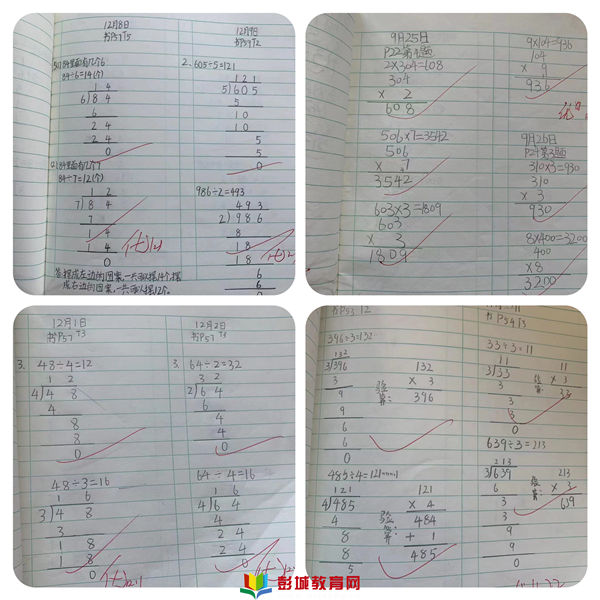 12月8日
书P59 T5
(1)84里面有几个6
84÷6=14(个)
1 4
6)8 4
6
2 4
2 4
0
(2)84里面有几个7
84÷7=12(个)
1 2
7)8 4
7
1 4
1 4
0
答:摆成左边的图案,一共可以摆14个,摆
成右边的图案,一共可以摆12个。
12月9日
书P59 T2
2. 605÷5=121
1 2 1
5)6 0 5
5
1 0
1 0
5
5
0
986÷2=493
4 9 3
2)9 8 6
8
1 8
1 8
6
6
0
9月25日
P22第4题
2×304=608
304
× 2
608
506×7=3542
506
× 7
3542
603×3=1809
603
× 3
1809
9×104=936
104
× 9
936
优
9月26日
P24第3题
310×3=930
310
× 3
930
8×400=3200
400
×8
3200
12月1日
书P57 T3
3. 48÷4=12
1 2
4)4 8
4
8
8
0
48÷3=16
1 6
3)4 8
3
1 8
1 8
0
12月2日
书P57 T3
3. 64÷2=32
3 2
2)6 4
6
4
4
0
64÷4=16
1 6
4)6 4
4
2 4
2 4
0
书P53 T2
396÷3=132
132
3)396
3
9
9
6
6
0
验算:
132
× 3
396
485÷4=121……1
121
4)485
4
8
8
5
验算:
121
× 4
484
+ 1
485
书P54 T3
33÷3=11
11
3)33
3
3
3
0
验算:
11
× 3
33
639÷3=213
213
3)639
6
3
3
9
9
0
验算:
213
× 3
639
彭城教育网